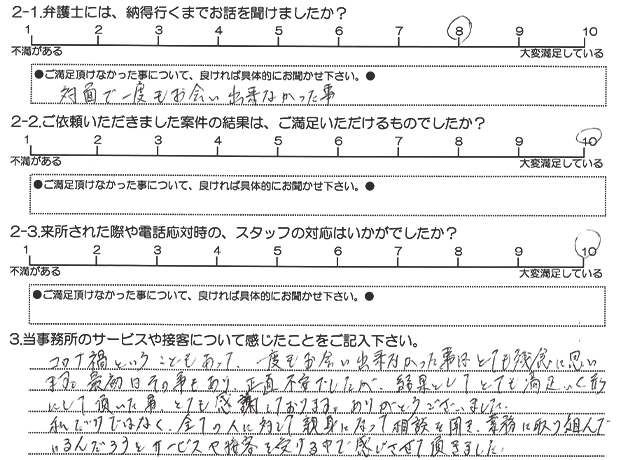 2-1.弁護士には、納得行くまでお話を聞けましたか？
1 2 3 4 5 6 7 8 9 10
不満がある 大変満足している
●ご満足頂けなかった事について、良ければ具体的にお聞かせ下さい。●
対面で一度もお会い出来なかった事
2-2.ご依頼いただきました案件の結果は、ご満足いただけるものでしたか？
1 2 3 4 5 6 7 8 9 10
不満がある 大変満足している
●ご満足頂けなかった事について、良ければ具体的にお聞かせ下さい。●
2-3.来所された際や電話応対時の、スタッフの対応はいかがでしたか？
1 2 3 4 5 6 7 8 9 10
不満がある 大変満足している
●ご満足頂けなかった事について、良ければ具体的にお聞かせ下さい。●
3.当事務所のサービスや接客について感じたことをご記入下さい。
コロナ禍ということもあって、一度もお会い出来なかった事はとても残念に思い
ます。最初はその事もあり、正直不安でしたが、結果としてとても満足いく形
にして頂いた事、とても感謝しております。ありがとうございました。
私だけではなく、全ての人に対して親身になって相談を聞き、業務に取り組んで
いるんだろうとサービスや接客を受ける中で感じさせて頂きました。